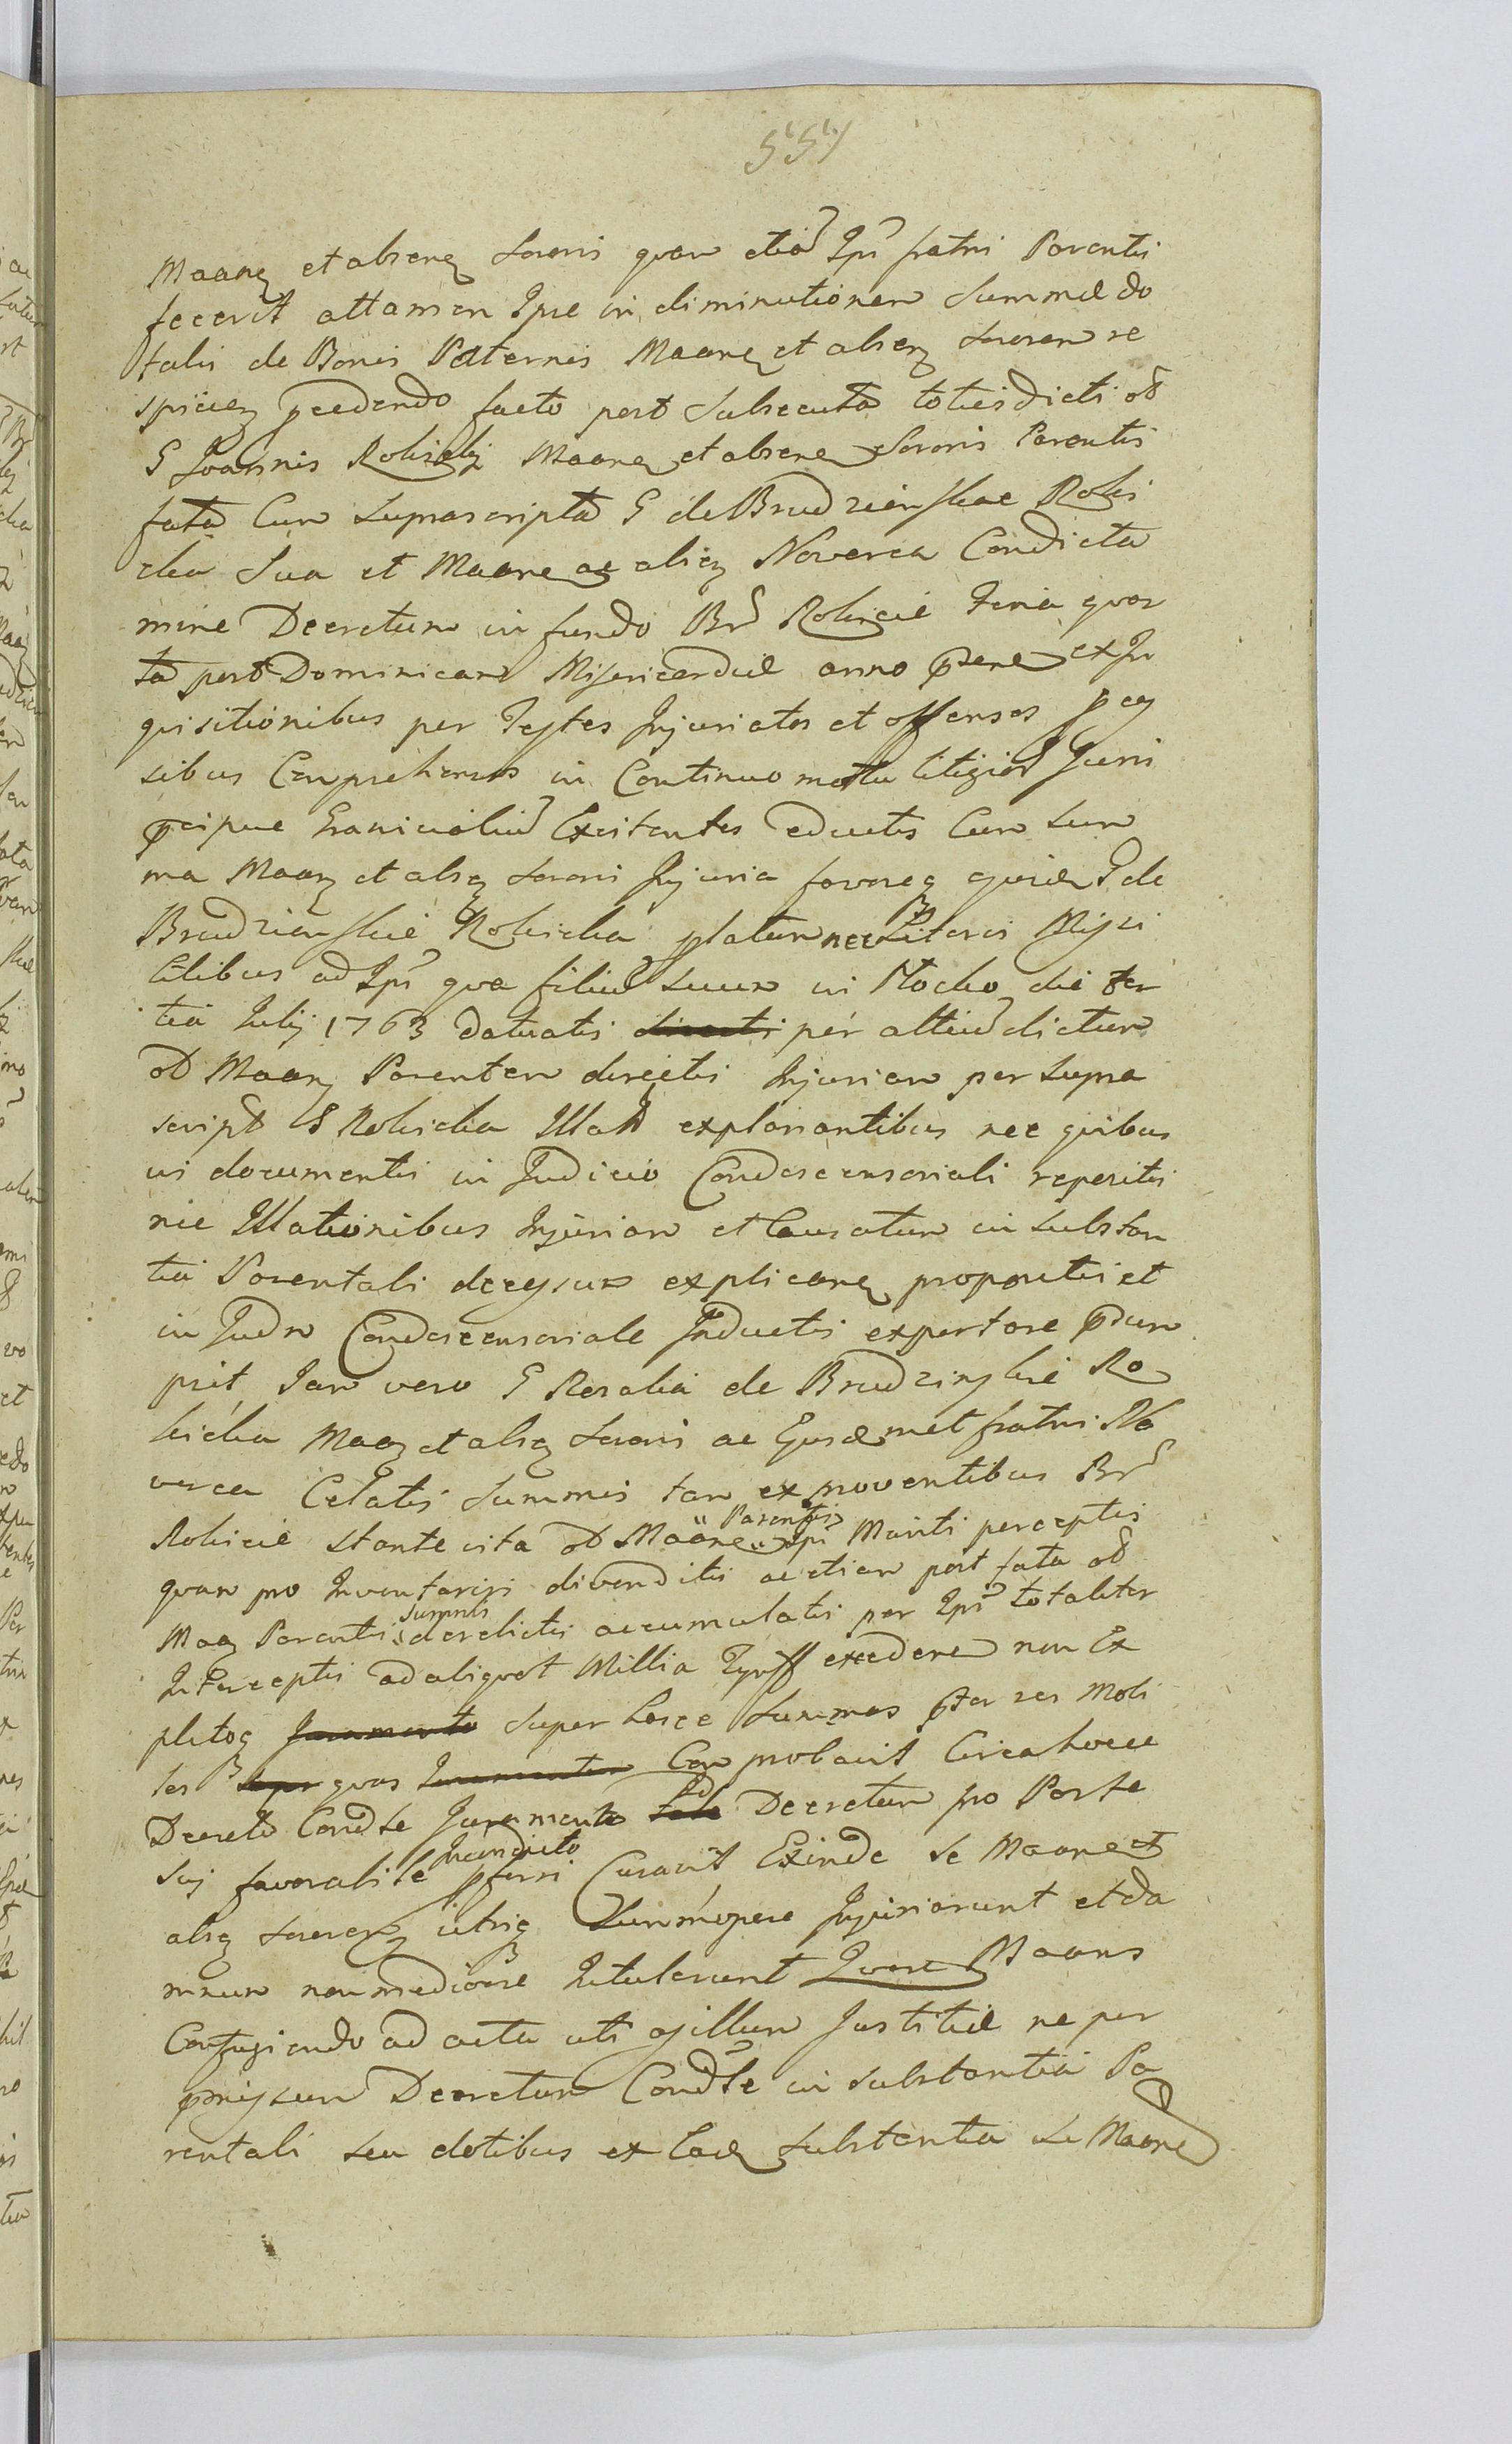 Maane et absene Sororis quam etia Ips fratris Parentis
fecerit attamen Ipse in diminutionem Summæ do
talis de Bonis Paternis Maane et absen Sororem re
spicien pcedendo facto post Subsecuta totiesdicti ol
G Joannis Robickij Maane et absene Sororis Parentis
fata Cum Suprascripta G de Brudzinskie Robi
cka Sua et Maane ac absen Noverca Condicta
mine Decretum in fundo Br Robicie Feria quar
ta post Dominicam Misericordiæ anno pene ex In
quisitionibus per Testes Injuriatos et offensos
sibus Comprehensos in Continuo motu litigior Juris
pcipue Granicialiu Excitantes eductis Cum Sum
ma Maan et absen Sororis Injuria favoreq G de
Brudzienskie Robicka platum nec Literis Missi
libus ad Ips qua filiu Suum in Plocko die ter
tia Julij 1763 datuatis per altiu dictum
ol Maan Parentem directis Injuriam per Supra
script G Robicka Illat explanantibus nec quibus
vis documentis in Judicio Condescensoriali repertis
nec Illationibus Injuriam et Causatum in Substan
tia Parentali decessum explicane propositis et
in Judm Condescensoriale Inductis expertare psum
psit, Jam vero G Rosalia de Brudzinskie Ro
bicka Maan et absen Sororis ac Ejusdemet fratris No
verca Celatis Summis tam ex provenibus Br
Robicie Stante vita ol Maane Parentis Ips Mariti perceptis
quam pro Inventarijs divenditis ac etiam post fata ol
Maan Parentis Summis derelictis accumulatis per Ips totaliter
Interceptis ad aliquot Millia Tynff excedene non Ex
pletoq Juramento Super hosce Summas pter res Mobi
les quas Comprobavit Circa hocce
Decreto Condle Juramento Decretum pro Parte
Sui favorabile Incondicto pferri Curavit Exinde Se Maane et
absen Sororem utrisq Summopere Injuriarunt et da
mnum non mediocre Intulerunt Quare Maans
Confugiendo ad acta uti asillum Justitiæ ne per
pmissum Decretum Condle in Substantia Pa
rentali Seu dotibus ex eadem Substantia Se Maane